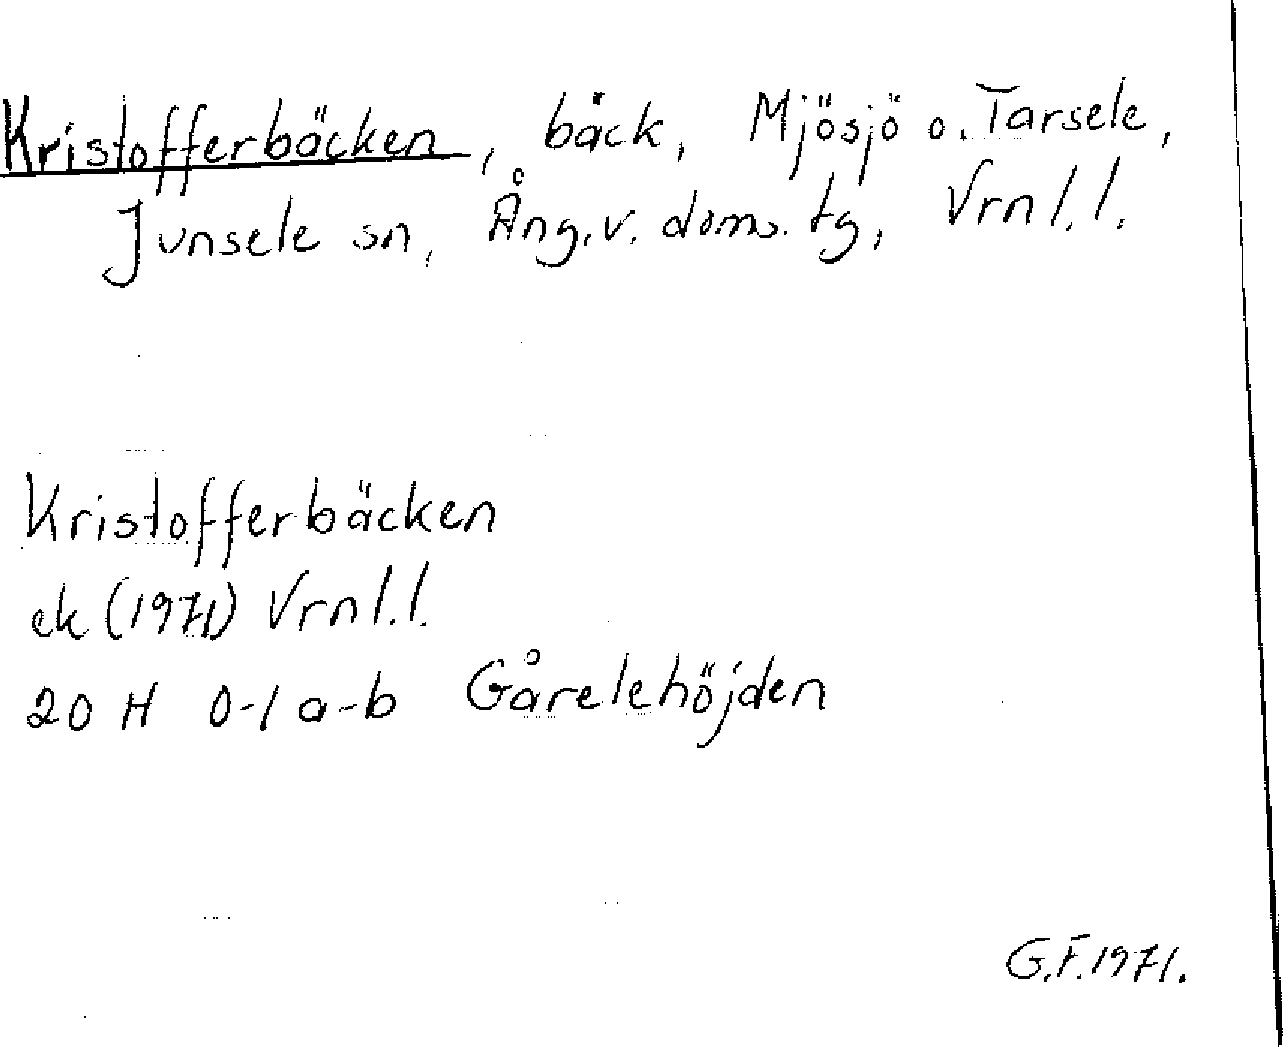 Kristofferbäcken, bäck, Mjösjö o. Tarsele,
Junsele sn, Ång. v. doms. tg, Vrnl.l.
Kristofferbäcken
ek (1971) Vrnl.l.
20 H 0-1 a-b Gårelehöjden
G.F. 1971.